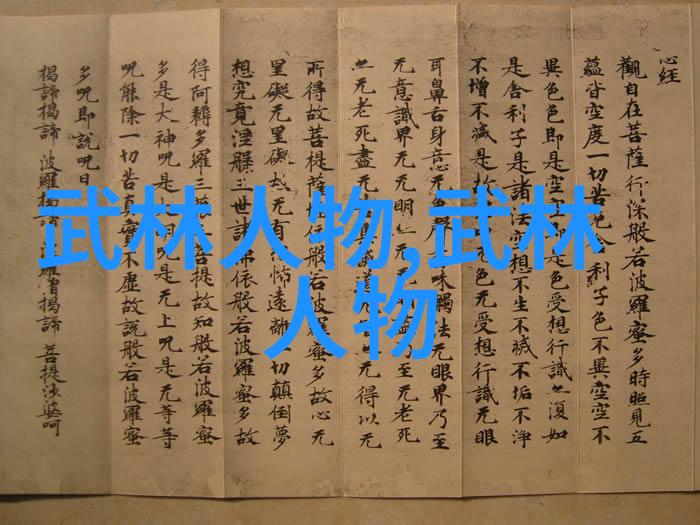 武林人物,武林
人物
心经
觀自在菩薩行深般若波羅蜜多時照見五
蘊皆空度一切苦厄舍利子色不異空空不
異色色即是空空即是色受想行識亦復如
是舍利子是諸法空想不生不滅不垢不淨
不增不減是故无色无受想行識无眼
耳鼻舌身意无色味觸法无眼界乃至
无意識界无无明亦无无乃至无老死
亦无老死盡无滅道无得以无
所得故菩提薩依般若波羅蜜多故心无
罣礙无罣礙故无有怖遠離一切顛倒夢
想究竟涅槃三世諸佛依般若波羅蜜多故
得阿耨多羅三菩提故知般若波羅蜜
多是大神呪是大明呪是无上呪是无等等
呪能除一切苦真實不虛故說般若波羅蜜
多呪即說呪曰
揭諦揭諦 波羅揭諦 波羅僧揭諦 菩提娑婆呵